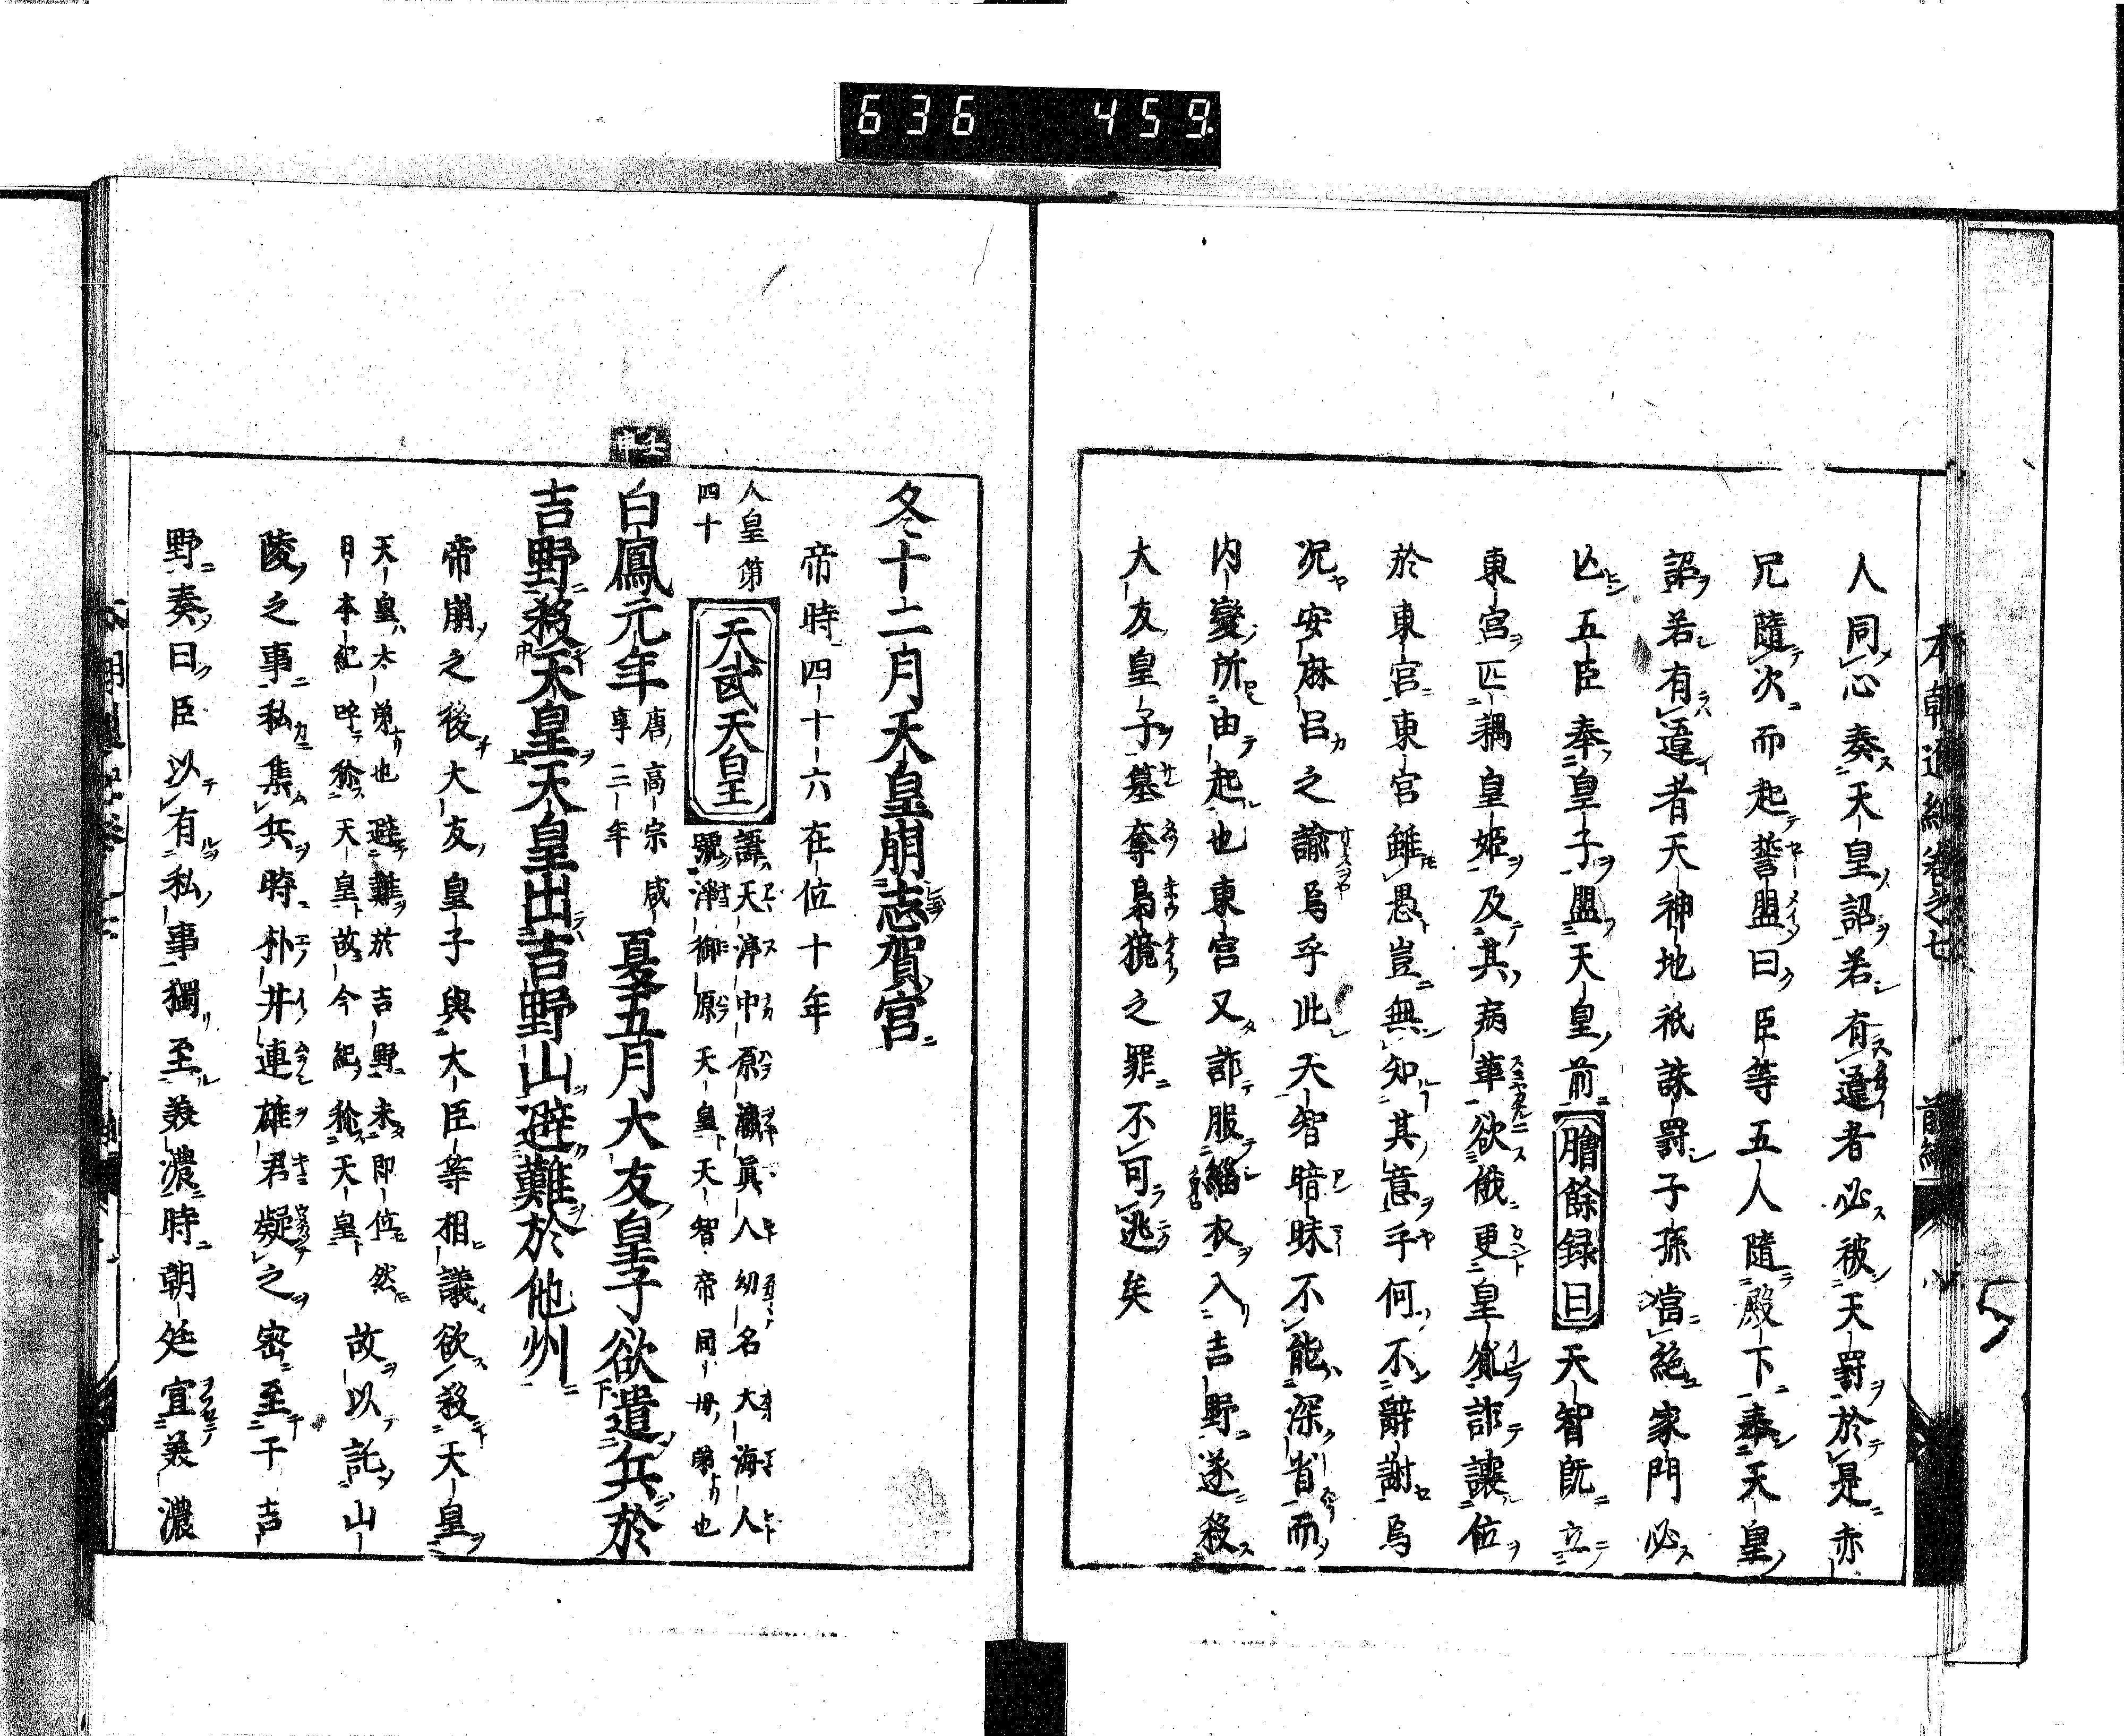 636 459
本朝通紀卷之七 前編
人同心奏天皇詔若有違者必被天罰於是赤
兄隨次而起誓盟曰臣等五人隨殿下奉天皇
詔若有違者天神地祇誅罰子孫當絶家門必
亾五臣奉皇子盟天皇前膾餘録曰天智既立
東宮匹耦皇姬及其病革欲俄更皇儲詐讓位
於東宮東宮雖愚豈無知其意乎何不辭謝焉
况安麻呂之諭焉乎此天智暗昧不能深省而
内變所由起也東宮又詐服緇衣入吉野遂殺
大友皇子墓奪梟獍之罪不可逃矣
5
冬十二月天皇崩志賀宮
帝時四十六在位十年
人皇第四十
天武天皇
諱天渟中原瀛眞人幼名大海人
號淨御原天皇天智帝同母弟也
壬申
白鳳元年唐高宗咸亨二年夏五月大友皇子欲遣兵於
吉野殺天皇天皇出吉野山避難於他州
帝崩之後大友皇子與大臣等相議欲殺天皇
天皇太弟也避難於吉野未即位然
日本紀呼稱天皇故今紀稱天皇
故以託山
陵之事私集兵時朴井連雄君疑之密至于吉
野奏曰臣以有私事獨至美濃時朝廷宣美濃